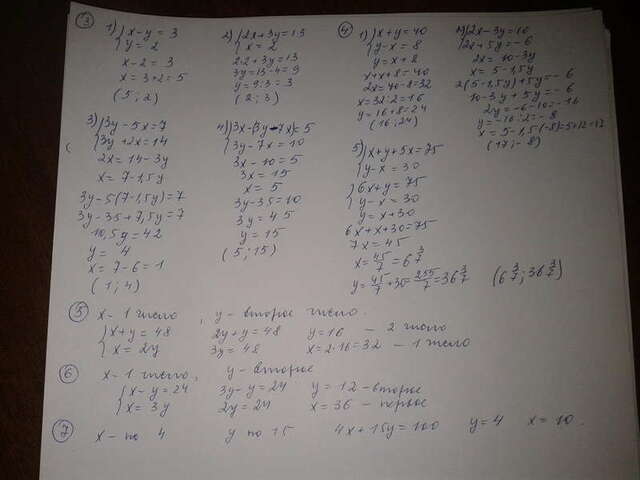 ③
1) {x-y=3
{y=2
x-2=3
x=3+2=5
(5;2)
2) {2x+3y=13
{x=2
2·2+3y=13
3y=13-4=9
y=9:3=3
(2;3)
3) {3y-5x=7
{3y+2x=14
2x=14-3y
x=7-1,5y
3y-5(7-1,5y)=7
3y-35+7,5y=7
10,5y=42
y=4
x=7-6=1
(1;4)
4) {3x-(3y-7x)=5
{3y-7x=10
3x-10=5
3x=15
x=5
3y-35=10
3y=45
y=15
(5;15)
④
1) {x+y=40
{y-x=8
y=x+8
x+x+8=40
2x=40-8=32
x=32:2=16
y=16+8=24
(16;24)
2) {2x-3y=10
{2x+5y=-6
2x=10-3y
x=5-1,5y
2(5-1,5y)+5y=-6
10-3y+5y=-6
2y=-6-10=-16
y=-16:2=-8
x=5-1,5(-8)=5+12=17
(17;-8)
5) {x+y+5x=75
{y-x=30
{6x+y=75
{y-x=30
y=x+30
6x+x+30=75
7x=45
x=45/7=6 3/7
y=45/7+30=255/7=36 3/7 (6 3/7; 36 3/7)
⑤ x-1 число, y-второе число.
{x+y=48 2y+y=48 y=16 - 2 число
{x=2y 3y=48 x=2·16=32 - 1 число
⑥ x-1 число, y-второе
{x-y=24 3y-y=24 y=12-второе
{x=3y 2y=24 x=36-первое
⑦ x-по 4 y по 15 4x+15y=100 y=4 x=10.